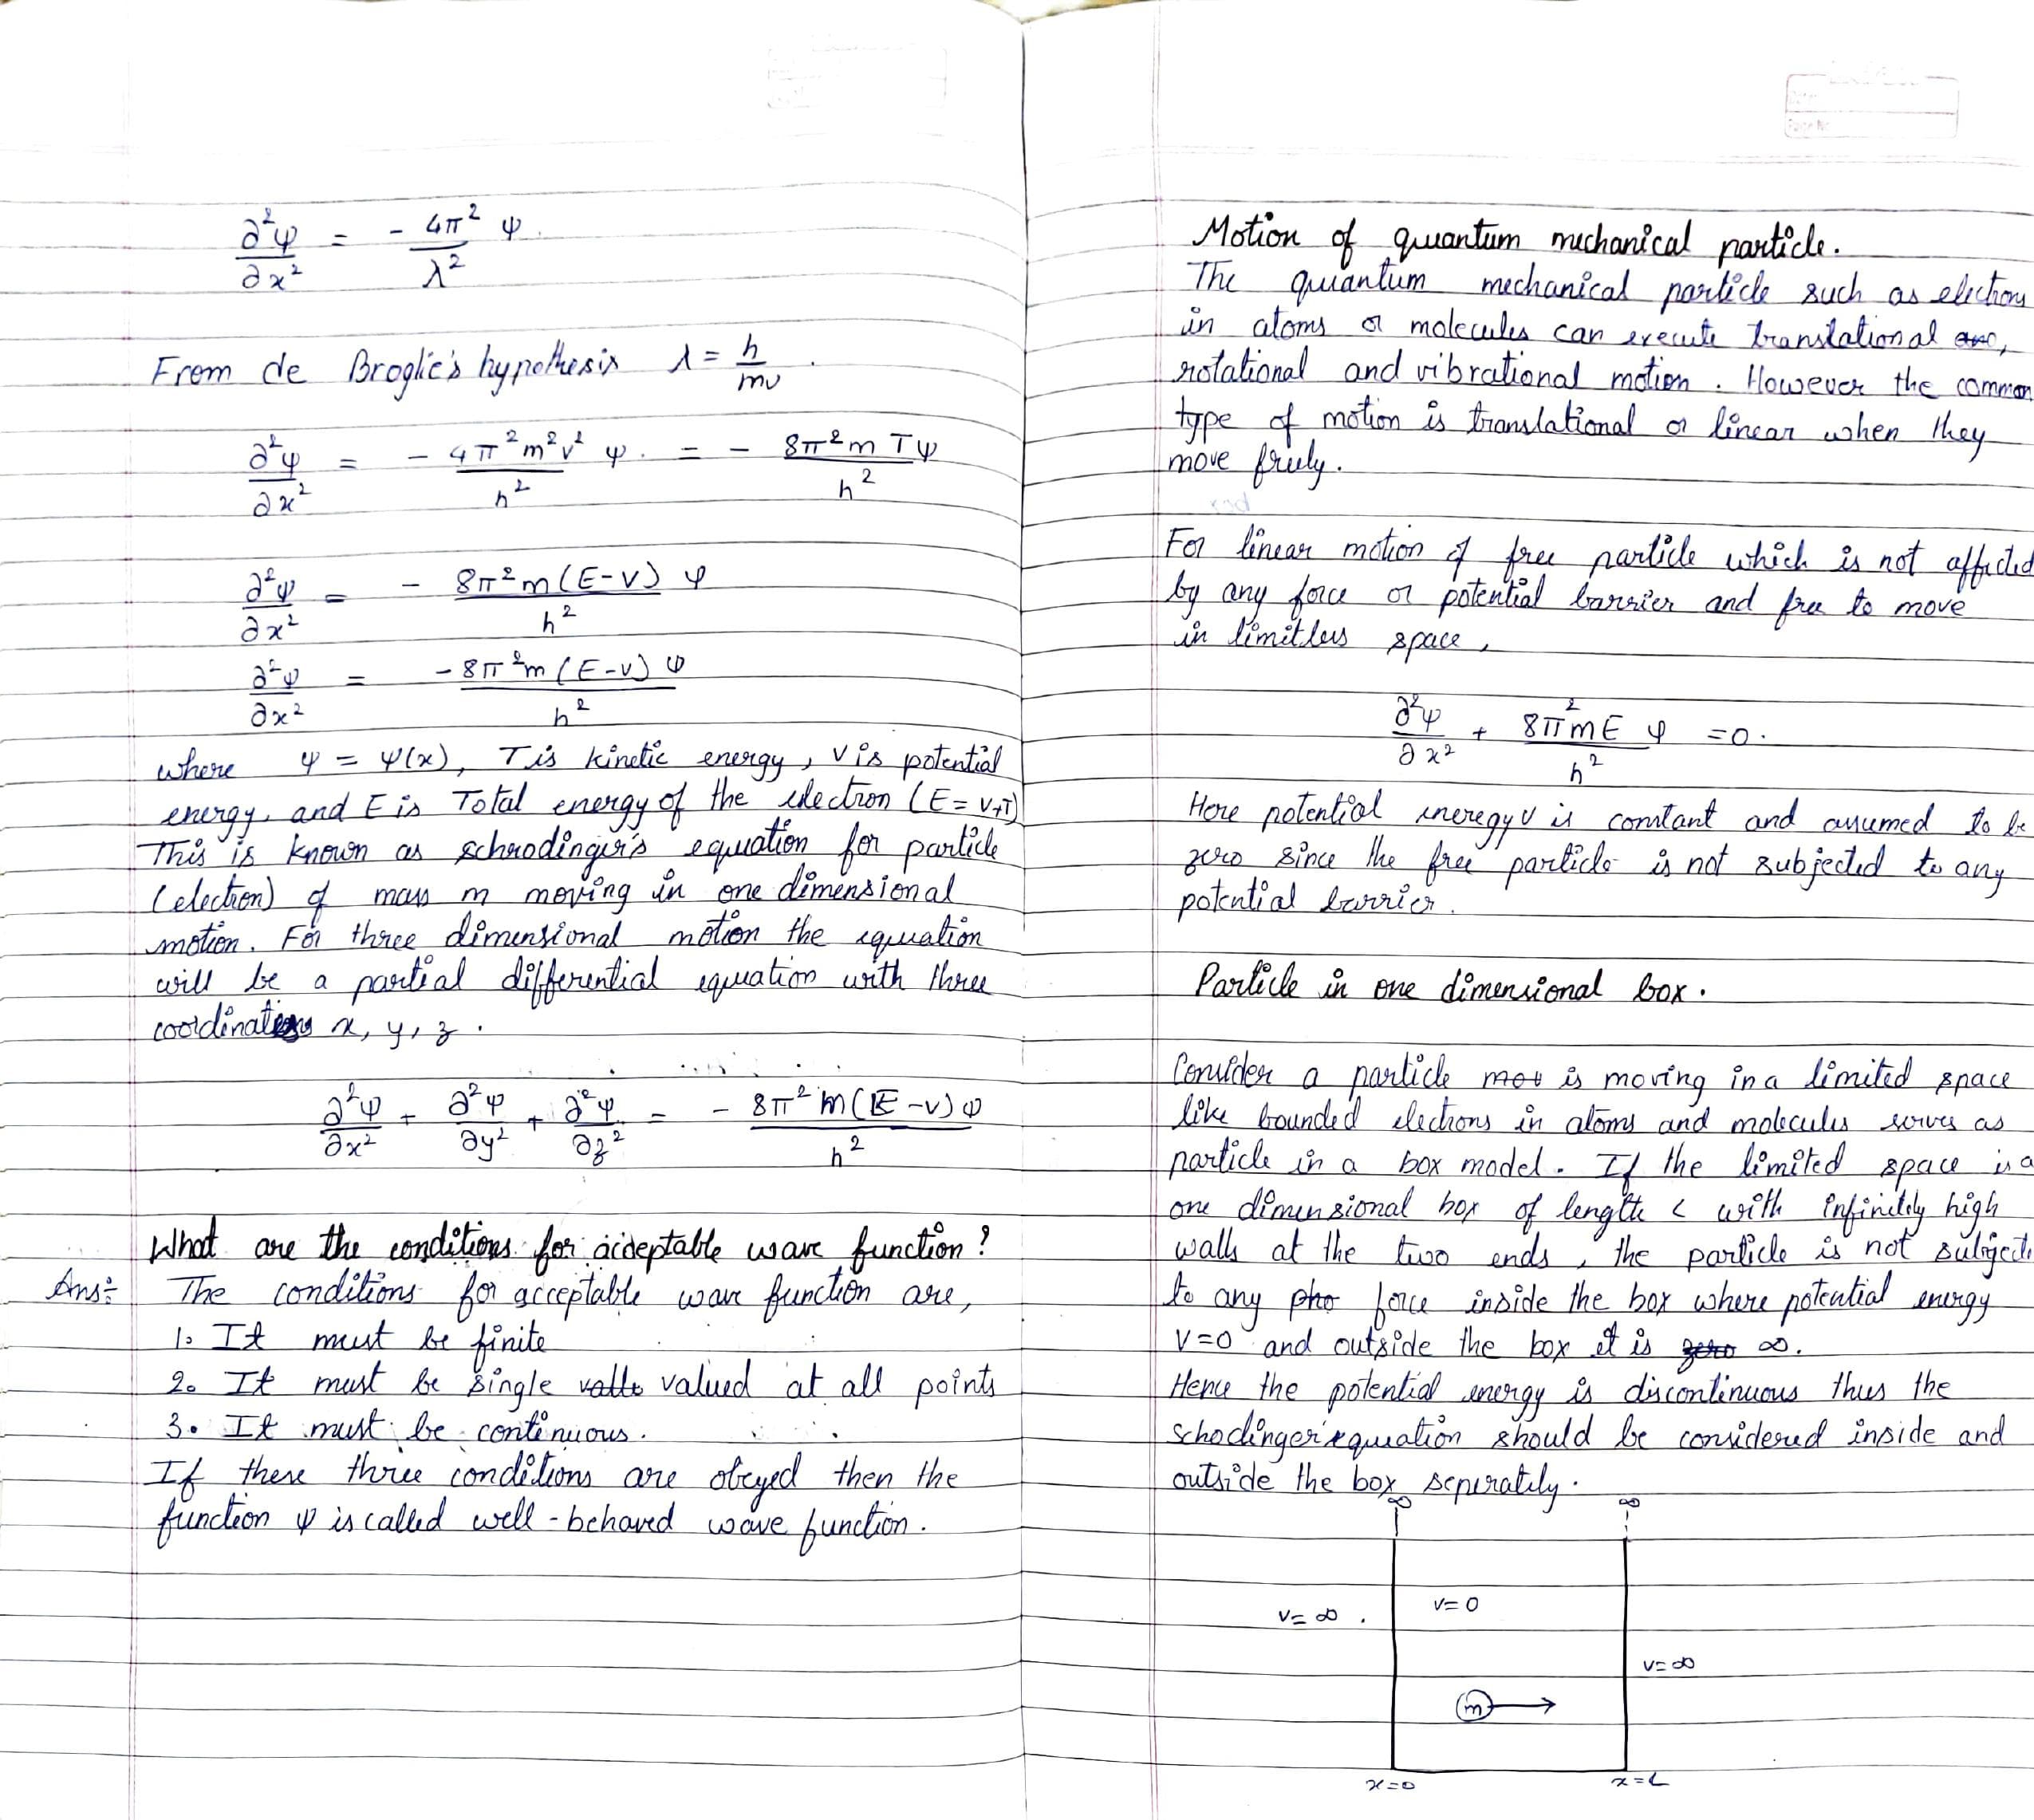 ∂²ψ/∂x² = - 4π²/λ² ψ.
From de Broglie's hypothesis λ = h/mv .
∂²ψ/∂x² = - 4π²m²v²/h² ψ. = - 8π²mTψ/h²
∂²ψ/∂x² = - 8π²m(E-V)ψ/h²
∂²ψ/∂x² = -8π²m(E-V)ψ/h²
where ψ = ψ(x), T is kinetic energy, V is potential
energy, and E is Total energy of the electron (E = V+T)
This is known as schrodinger's equation for particle
(electron) of mass m moving in one dimensional
motion. For three dimensional motion the equation
will be a partial differential equation with three
coordinates x, y, z .
∂²ψ/∂x² + ∂²ψ/∂y² + ∂²ψ/∂z² = - 8π²m(E-V)ψ/h²
What are the conditions for acideptable wave function?
Ans:- The conditions for acceptable wave function are,
1. It must be finite
2. It must be single valued at all points
3. It must be continuous.
If these three conditions are obeyed then the
function ψ is called well-behaved wave function.
Page No
Motion of quantum mechanical particle.
The quantum mechanical particle such as electrons
in atoms or molecules can execute translational,
rotational and vibrational motion. However the common
type of motion is translational or linear when they
move freely.
For linear motion of free particle which is not affected
by any force or potential barrier and free to move
in limitless space,
∂²ψ/∂x² + 8π²mE/h² ψ = 0.
Here potential eneregy V is constant and assumed to be
zero since the free particle is not subjected to any
potential barrier.
Particle in one dimensional box.
Consider a particle is moving in a limited space
like bounded electrons in atoms and molecules serves as
particle in a box model. If the limited space is a
one dimensional box of length L with infinitely high
walls at the two ends, the particle is not subject
to any force inside the box where potential energy
V=0 and outside the box it is ∞.
Hence the potential energy is discontinuous thus the
schodinger's equation should be considered inside and
outside the box seperately.
∞ ∞
V=∞ . V=0
V=∞
m
x=0 x=L